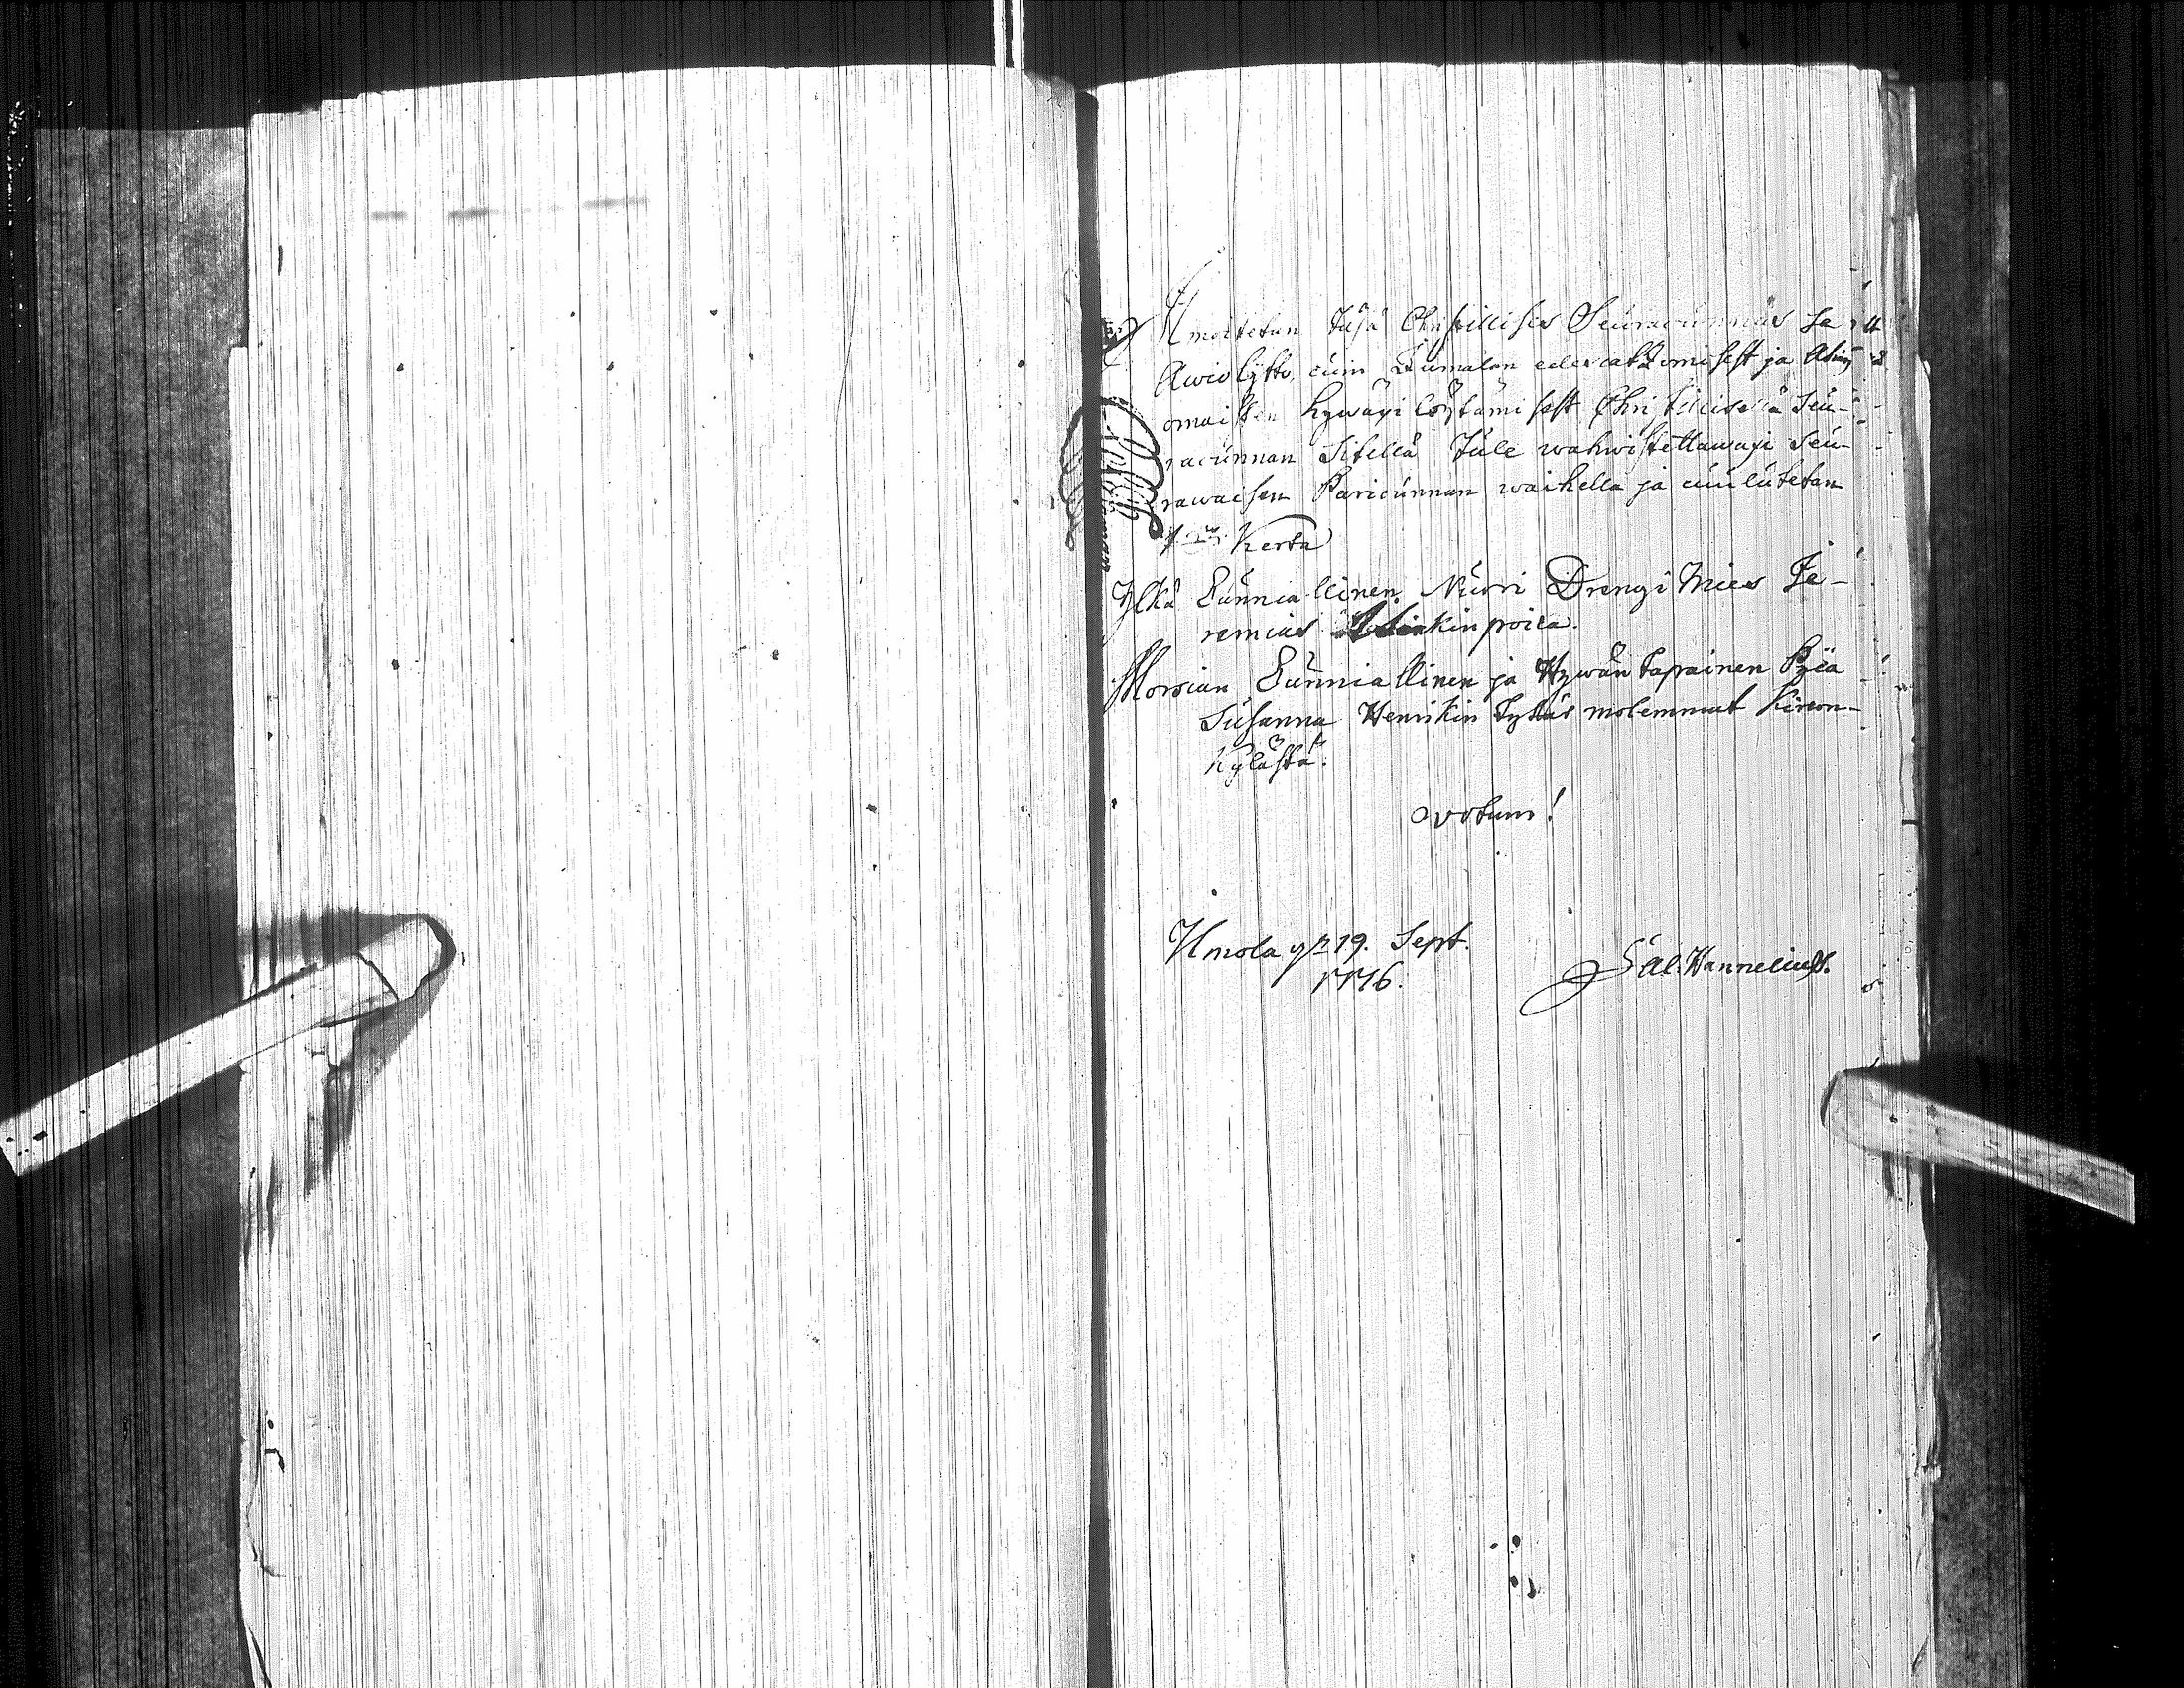 Ilmoitetan täsä Christillises Seuracunnas se
Awio lijtto, cuin Jumalan edescatzomisest ja Asian
omaisten hywäxi löytämisest Christillisellä Seu-
racunnan Sitellä tule wahwistettawaxi Seu-
rawaisen Paricunnan waihella ja cuulutetan
1. Kerta
Yljkä Cunniallinen Nuori Drengi Mies Je-
remias kin poica.
Morsian Cunniallinen ja Hywän tapainen Pijca
Susanna Henrikin tytär molemmat Kircon-
kylästä.
votum!
Ulmola 19. Sept.
1776.
Sal. Hannelius.